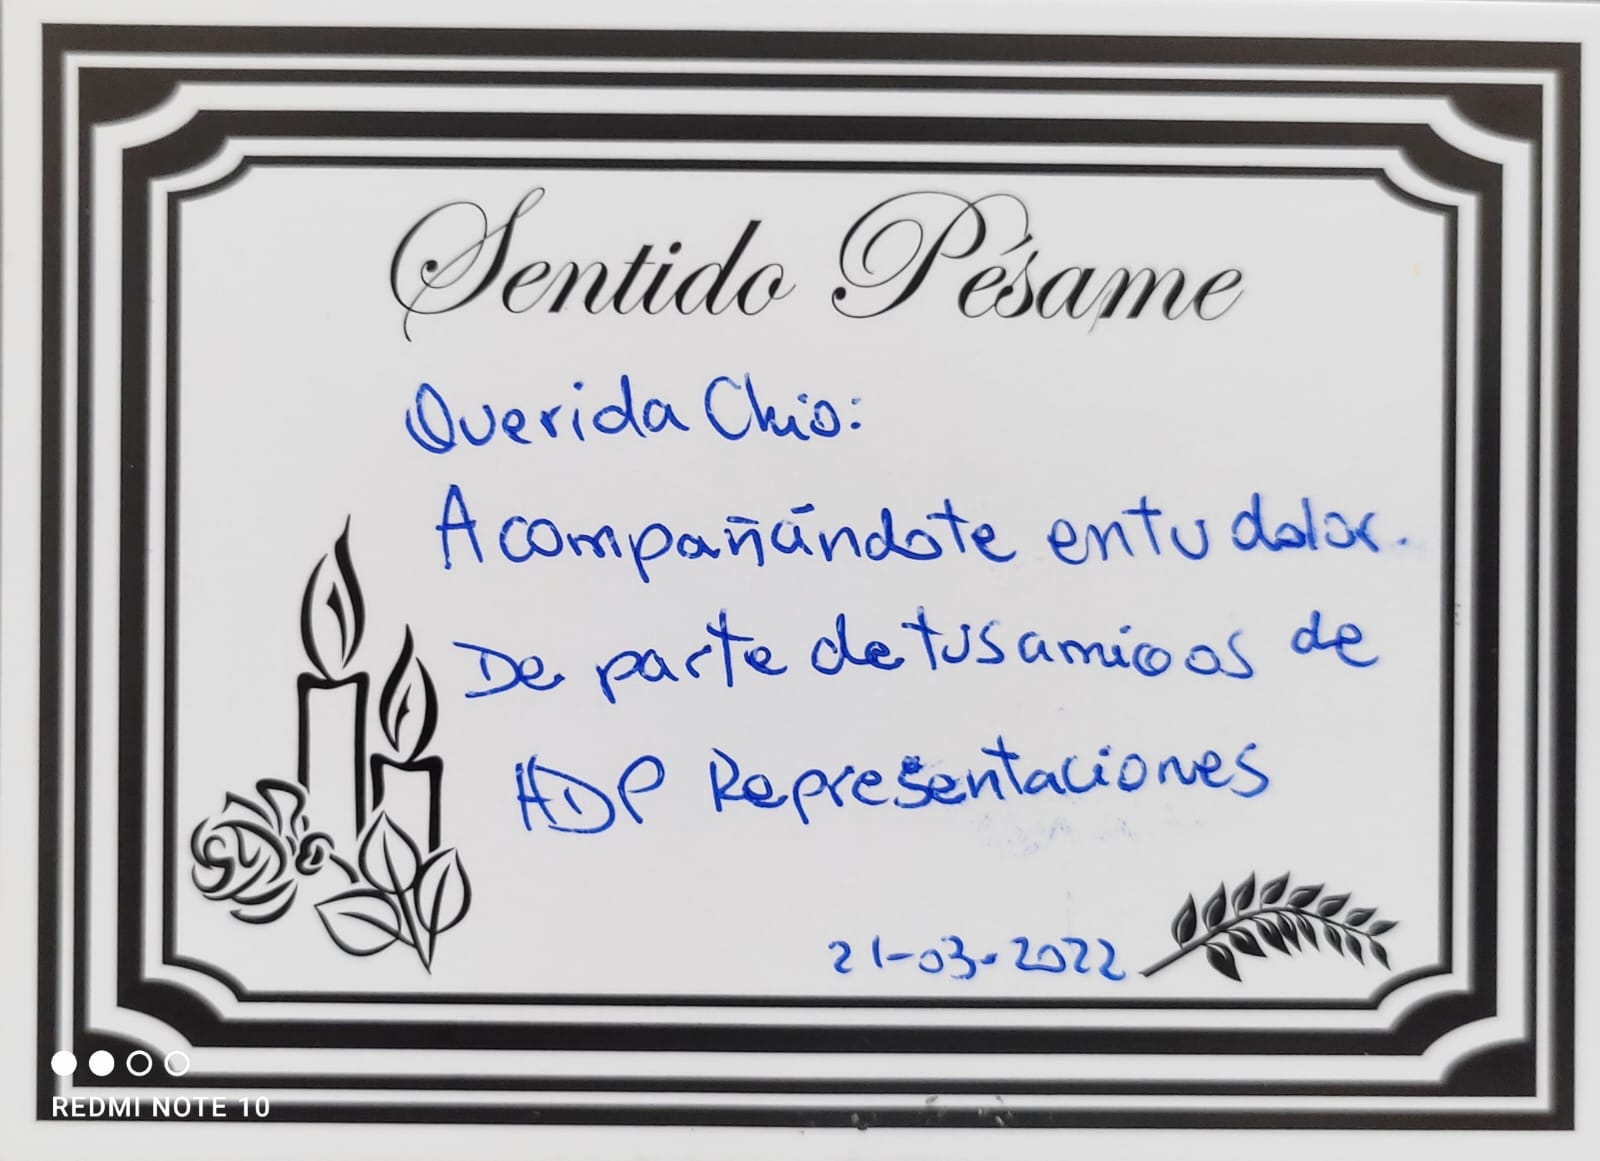 Sentido Pésame
Querida Chio:
Acompañándote en tu dolor.
De parte de tus amigos de
ADP Representaciones
21-03-2022
REDMI NOTE 10